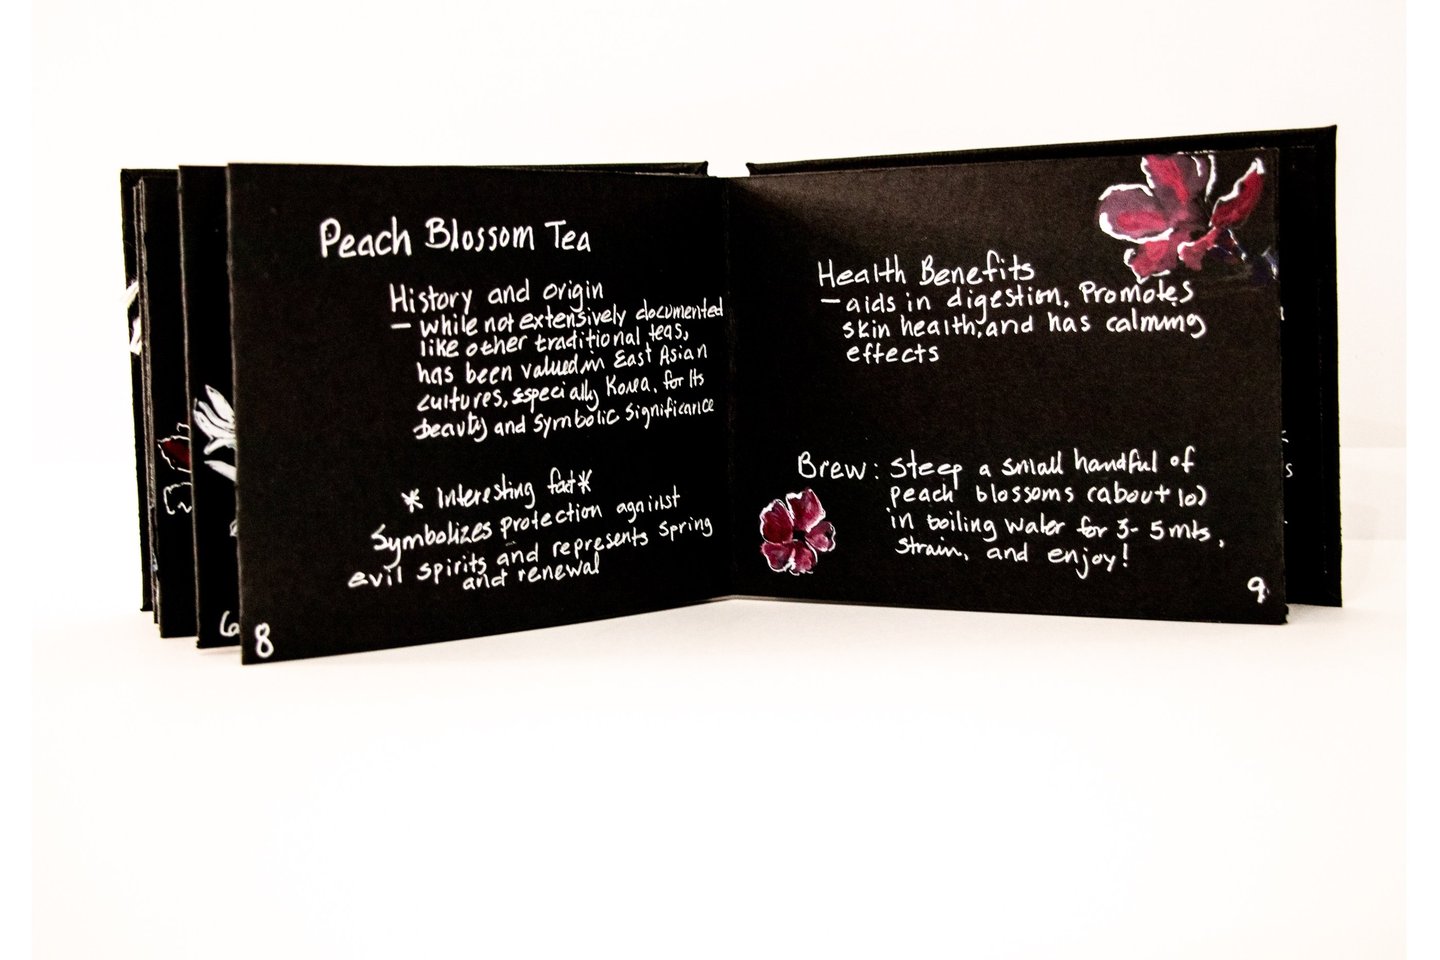 Peach Blossom Tea
History and origin
– while not extensively documented
like other traditional teas,
has been valued in East Asian
cultures, especially Korea, for Its
beauty and symbolic significance
* Interesting fact *
Symbolizes protection against
evil spirits and represents Spring
and renewal
8
6
Health Benefits
– aids in digestion, Promotes
skin health, and has calming
effects
Brew: Steep a small handful of
peach blossoms (about 10)
in boiling water for 3-5 mts,
strain, and enjoy!
9
s